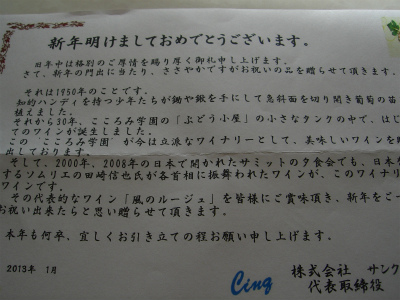 新年明けましておめでとうございます。
旧年中は格別のご厚情を賜り厚く御礼申し上げます。
さて、新年の門出に当たり、ささやかですがお祝いの品を贈らせて頂きます。
それは1950年のことです。
知的ハンディを持つ少年たちが鋤や鍬を手にして急斜面を切り開き葡萄の苗
植えました。
それから30年、こころみ学園の「ぶどう小屋」の小さなタンクの中で、はじ
てのワインが誕生しました。
この"こころみ学園"が今は立派なワイナリーとして、美味しいワインを
出しております。
そして、2000年、2008年の日本で開かれたサミットの夕食会でも、日本
するソムリエの田崎信也氏が各首相に振舞われたワインが、このワイナリ
ワインです。
その代表的なワイン「風のルージュ」を皆様にご賞味頂き、新年をご一
お祝い出来たらと思い贈らせて頂きます。
本年も何卒、宜しくお引き立ての程お願い申し上げます。
2013年 1月
Cinq
株式会社 サンク
代表取締役